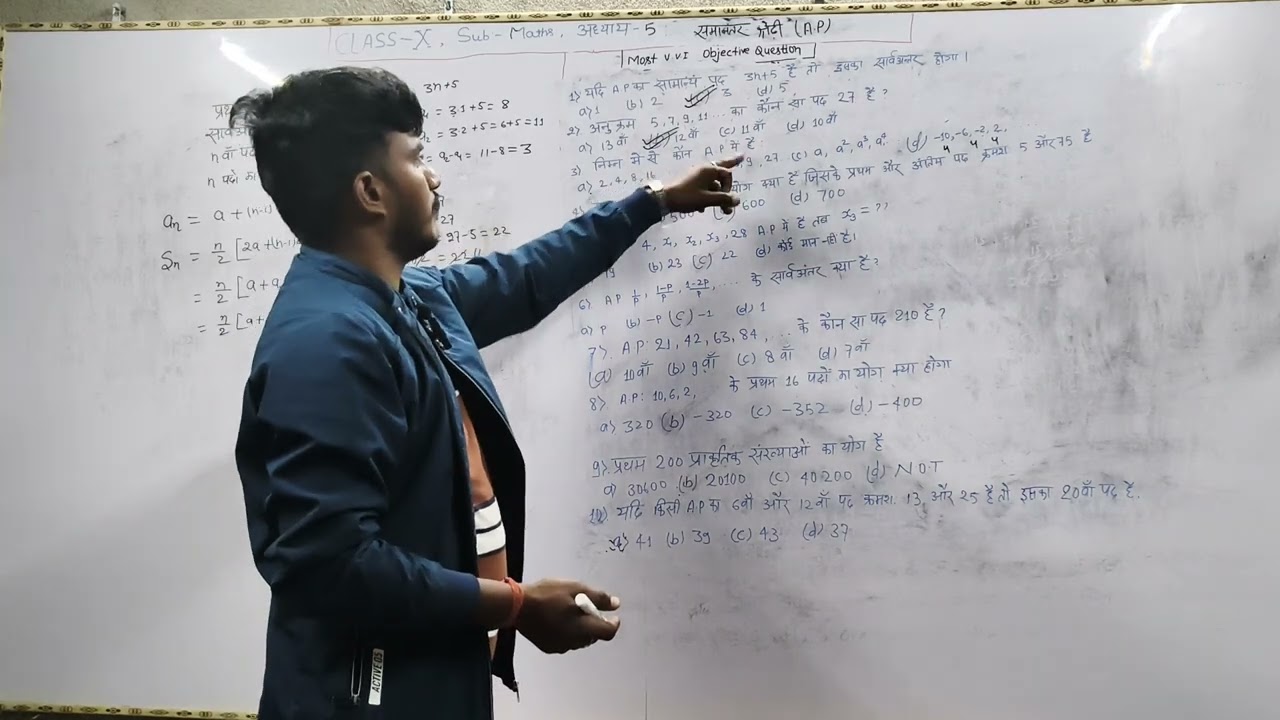 CLASS-X, Sub-Maths, अध्याय-5 : समान्तर श्रेढ़ी (A.P)
Most V.V.I Objective Question
3n+5
= 3.1+5 = 8
= 3.2+5 = 6+5 = 11
= 11-8 = 3
n पदों का
an = a+(n-1)
Sn = n/2 [2a+(n-1)
= n/2 [a+a
= n/2 [a+
27
27-5 = 22
1) यदि A.P का सामान्य पद 3n+5 है तो इसका सार्वअंतर होगा।
a) 1 (b) 2 3 (d) 5
2) अनुक्रम 5, 7, 9, 11... का कौन सा पद 27 है?
a) 13वाँ 12वाँ (c) 11वाँ (d) 10वाँ
3) निम्न में से कौन A.P में है
a) 2, 4, 8, 16 9, 27 (c) a, a², a³, a⁴ (d) -10, -6, -2, 2,
4 4 4
योग क्या है जिसके प्रथम और अंतिम पद क्रमशः 5 और 75 है
500 600 (d) 700
4, x₁, x₂, x₃, 28 A.P में है तब x₃ = ??
19 (b) 23 (c) 22 (d) कोई मान नहीं है।
6) A.P 1/P, 1-P/P, 1-2P/P, .... के सार्वअंतर क्या है?
a) P (b) -P (c) -1 (d) 1
7) A.P: 21, 42, 63, 84, ... के कौन सा पद 210 है?
(a) 10वाँ (b) 9वाँ (c) 8वाँ (d) 7वाँ
8) A.P: 10, 6, 2, के प्रथम 16 पदों का योग क्या होगा
a) 320 (b) -320 (c) -352 (d) -400
9) प्रथम 200 प्राकृतिक संख्याओं का योग है
a) 30400 (b) 20100 (c) 40200 (d) NOT
10) यदि किसी A.P का 6वाँ और 12वाँ पद क्रमशः 13, और 25 है तो इसका 20वाँ पद है.
41 (b) 39 (c) 43 (d) 37
ACTIVE